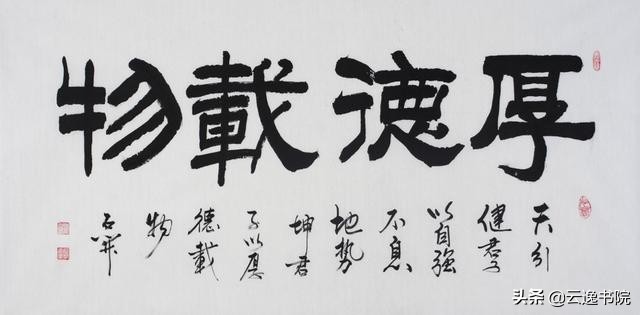 厚德載物
天行
健君子
以自強
不息
地勢
坤君
子以厚
德載
物
头条 @云逸书院